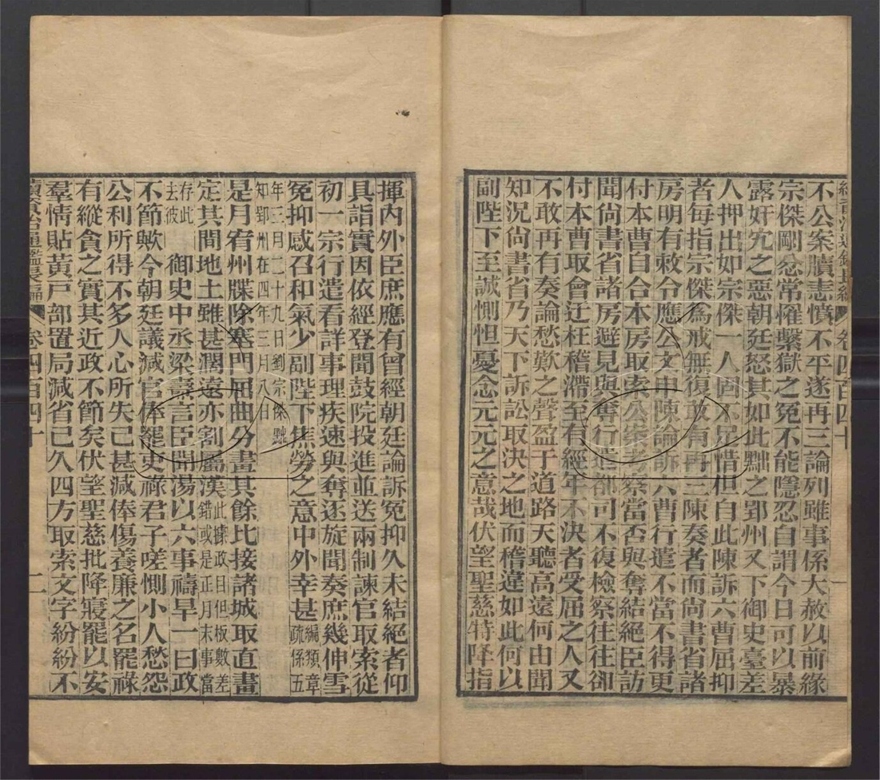 不公案牘志憤不平遂再三論列雖事係大赦以前緣
宗傑剛忿常懼繫獄之冤不能隱忍自謂今日可以暴
露奸宄之惡朝廷怒其如此黜之鄆州又下御史臺差
人押出如宗傑一人固不足惜但自此陳訴六曹屈抑
者每指宗傑為戒無復敢有再三陳奏者而尚書省諸
房明有敕令應公文申陳論訴六曹行遣不當不得更
付本曹自合本房取索公案考察當否與奪結絕臣訪
聞尚書省諸房避見與奪行遣卻可不復檢察往往卻
付本曹取會迂枉稽滯至有經年不決者受屈之人又
不敢再有奏論愁歎之聲盈于道路天聽高遠何由聞
知況尚書省乃天下訴訟取決之地而稽違如此何以
副陛下至誠惻怛憂念元元之意哉伏望聖慈特降指
揮內外臣庶應有曾經朝廷論訴冤抑久未結絕者仰
具詣實因依經登聞鼓院投進並送兩制諫官取索從
初一宗行遣看詳事理疾速與奪逐旋聞奏庶幾伸雪
冤抑感召和氣少副陛下焦勞之意中外幸甚編類章疏係五
年三月二十九日劉宗傑黜知鄆州在四年三月八日
是月宥州牒除塞門屈曲分畫其餘比接諸城取直畫
定其間地土雖甚濶遠亦割屬漢此據政目但板數差錯或是正月末事當
存此去彼 御史中丞梁燾言臣聞湯以六事禱旱一曰政
不節歟今朝廷議減官俸罷吏祿君子嗟惻小人愁怨
公利所得不多人心所失已甚減俸傷養廉之名罷祿
有縱貪之實其近政不節矣伏望聖慈批降寢罷以安
羣情貼黃戸部置局減省已久四方取索文字紛紛不
續資治通鑑長編 卷四百四十 二